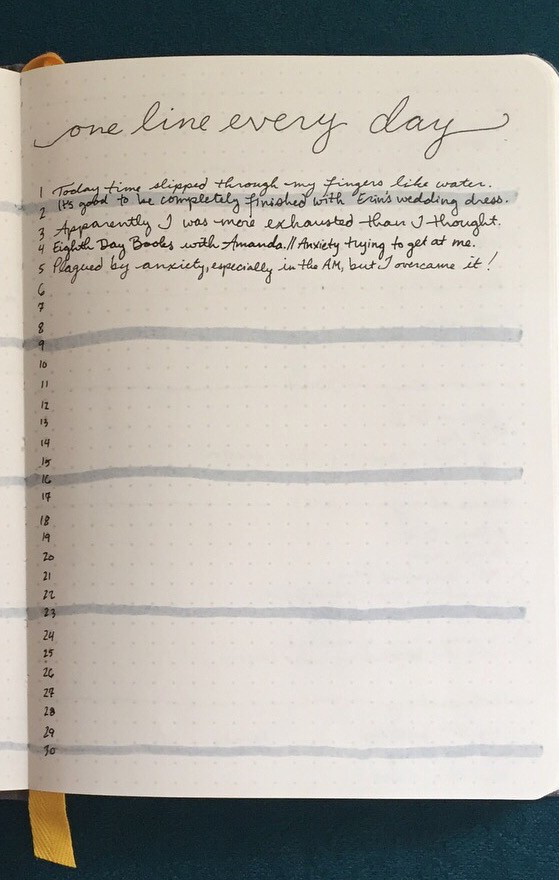 one line every day
1 Today time slipped through my fingers like water.
2 It's good to be completely finished with Erin's wedding dress.
3 Apparently I was more exhausted than I thought.
4 Eighth Day Books with Amanda. // Anxiety trying to get at me.
5 Plagued by anxiety, especially in the AM, but I overcame it!
6
7
8
9
10
11
12
13
14
15
16
17
18
19
20
21
22
23
24
25
26
27
28
29
30